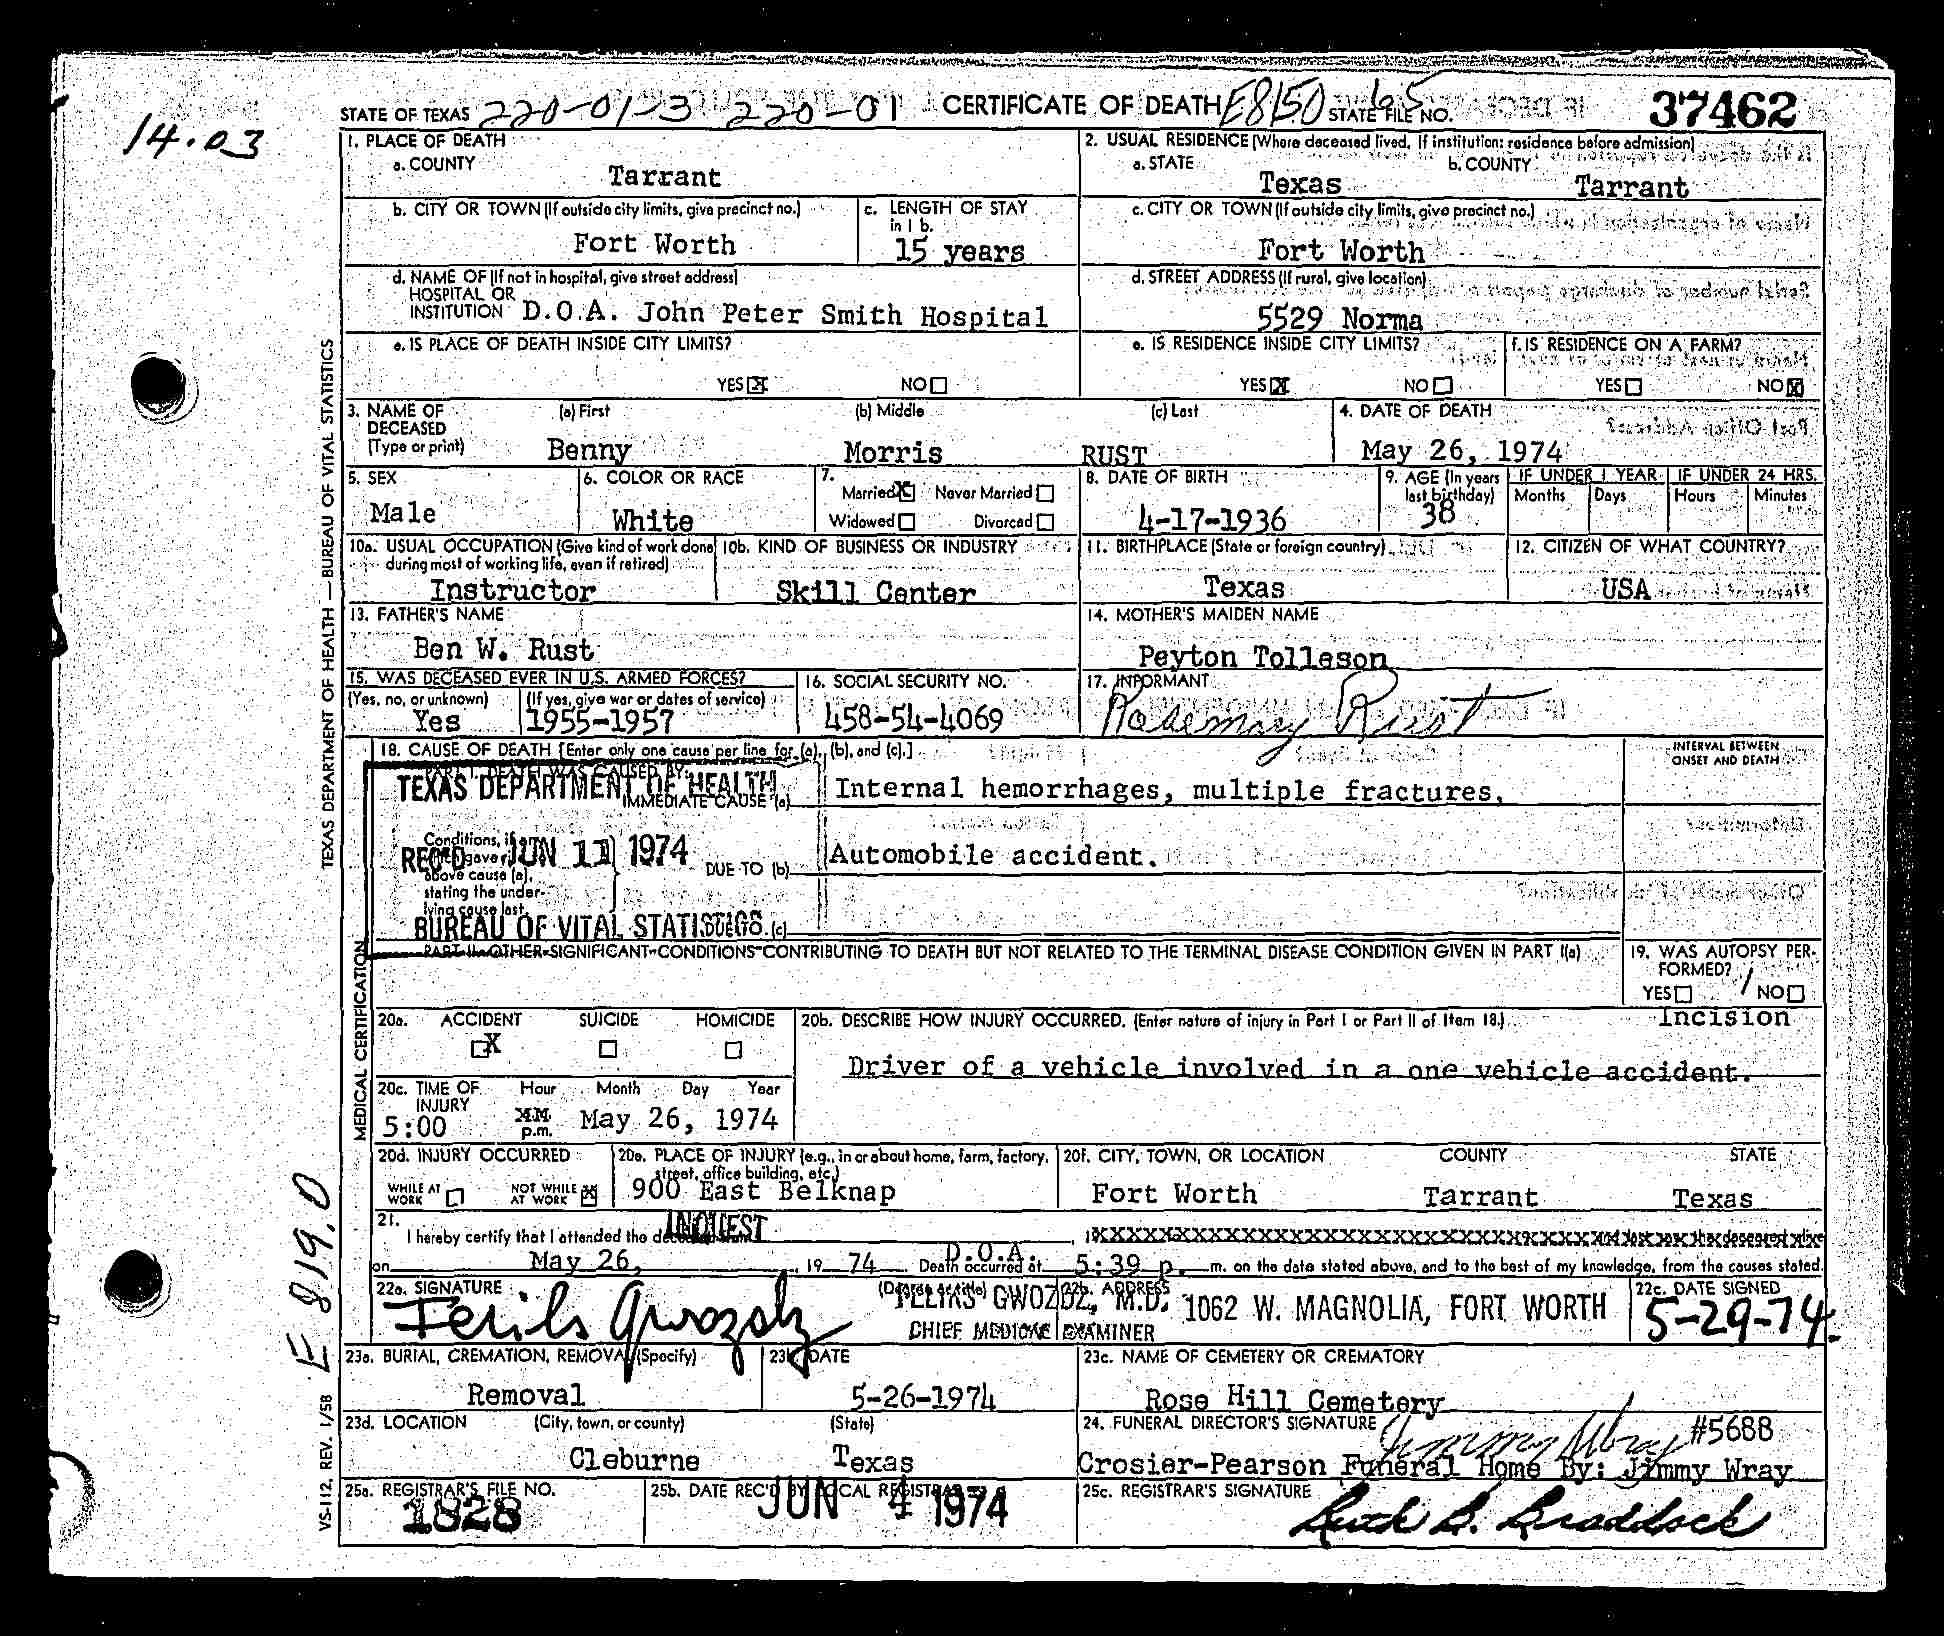 14.03
STATE OF TEXAS 220-01-3 220-01 CERTIFICATE OF DEATH E8150 65 STATE FILE NO. 37462
1. PLACE OF DEATH
a. COUNTY
Tarrant
2. USUAL RESIDENCE (Where deceased lived. If institution: residence before admission)
a. STATE b. COUNTY
Texas Tarrant
b. CITY OR TOWN (If outside city limits, give precinct no.)
Fort Worth
c. LENGTH OF STAY
in 1 b.
15 years
c. CITY OR TOWN (If outside city limits, give precinct no.)
Fort Worth
d. NAME OF (If not in hospital, give street address)
HOSPITAL OR
INSTITUTION D.O.A. John Peter Smith Hospital
d. STREET ADDRESS (If rural, give location)
5529 Norma
e. IS PLACE OF DEATH INSIDE CITY LIMITS?
YES X NO
e. IS RESIDENCE INSIDE CITY LIMITS?
YES X NO
f. IS RESIDENCE ON A FARM?
YES NO X
3. NAME OF
DECEASED
(Type or print)
(a) First (b) Middle (c) Last
Benny Morris RUST
4. DATE OF DEATH
May 26, 1974
5. SEX
Male
6. COLOR OR RACE
White
7.
Married X Never Married
Widowed Divorced
8. DATE OF BIRTH
4-17-1936
9. AGE (In years
last birthday)
38
IF UNDER 1 YEAR
Months Days
IF UNDER 24 HRS.
Hours Minutes
10a. USUAL OCCUPATION (Give kind of work done
during most of working life, even if retired)
Instructor
10b. KIND OF BUSINESS OR INDUSTRY
Skill Center
11. BIRTHPLACE (State or foreign country)
Texas
12. CITIZEN OF WHAT COUNTRY?
USA
13. FATHER'S NAME
Ben W. Rust
14. MOTHER'S MAIDEN NAME
Peyton Tolleson
15. WAS DECEASED EVER IN U.S. ARMED FORCES?
(Yes, no, or unknown) (If yes, give war or dates of service)
Yes 1955-1957
16. SOCIAL SECURITY NO.
458-54-4069
17. INFORMANT
Rosemary Rust
18. CAUSE OF DEATH [Enter only one cause per line for (a), (b), and (c).]
INTERVAL BETWEEN
ONSET AND DEATH
PART I. DEATH WAS CAUSED BY:
TEXAS DEPARTMENT OF HEALTH
IMMEDIATE CAUSE (a)
Internal hemorrhages, multiple fractures.
Conditions, if any
REC'D JUN 11 1974
above cause (a),
stating the under-
lying cause last.
DUE TO (b)
Automobile accident.
BUREAU OF VITAL STATISTICS
DUE TO (c)
PART II. OTHER SIGNIFICANT CONDITIONS CONTRIBUTING TO DEATH BUT NOT RELATED TO THE TERMINAL DISEASE CONDITION GIVEN IN PART I(a)
19. WAS AUTOPSY PER-
FORMED?
YES / NO
Incision
20a. ACCIDENT SUICIDE HOMICIDE
X
20b. DESCRIBE HOW INJURY OCCURRED. (Enter nature of injury in Part I or Part II of Item 18.)
Driver of a vehicle involved in a one vehicle accident.
20c. TIME OF Hour Month Day Year
INJURY
5:00 p.m. May 26, 1974
20d. INJURY OCCURRED
WHILE AT
WORK
NOT WHILE
AT WORK X
20e. PLACE OF INJURY (e.g., in or about home, farm, factory,
street, office building, etc.)
900 East Belknap
20f. CITY, TOWN, OR LOCATION COUNTY STATE
Fort Worth Tarrant Texas
21.
I hereby certify that I attended the INQUEST
on May 26, 19 74 D.O.A. Death occurred at 5:39 p. m. on the date stated above, and to the best of my knowledge, from the causes stated.
22a. SIGNATURE
Feliks Gwozdz
(Degree or title)
FELIKS GWOZDZ, M.D.
CHIEF MEDICAL EXAMINER
22b. ADDRESS
1062 W. MAGNOLIA, FORT WORTH
22c. DATE SIGNED
5-29-74.
23a. BURIAL, CREMATION, REMOVAL (Specify)
Removal
23b. DATE
5-26-1974
23c. NAME OF CEMETERY OR CREMATORY
Rose Hill Cemetery
23d. LOCATION (City, town, or county) (State)
Cleburne Texas
24. FUNERAL DIRECTOR'S SIGNATURE
Jimmy Wray #5688
Crosier-Pearson Funeral Home By: Jimmy Wray
25a. REGISTRAR'S FILE NO.
1828
25b. DATE REC'D BY LOCAL REGISTRAR
JUN 4 1974
25c. REGISTRAR'S SIGNATURE
Ruth B. Braddock
TEXAS DEPARTMENT OF HEALTH — BUREAU OF VITAL STATISTICS
MEDICAL CERTIFICATION
E 819.0
VS-112, REV. 1/58